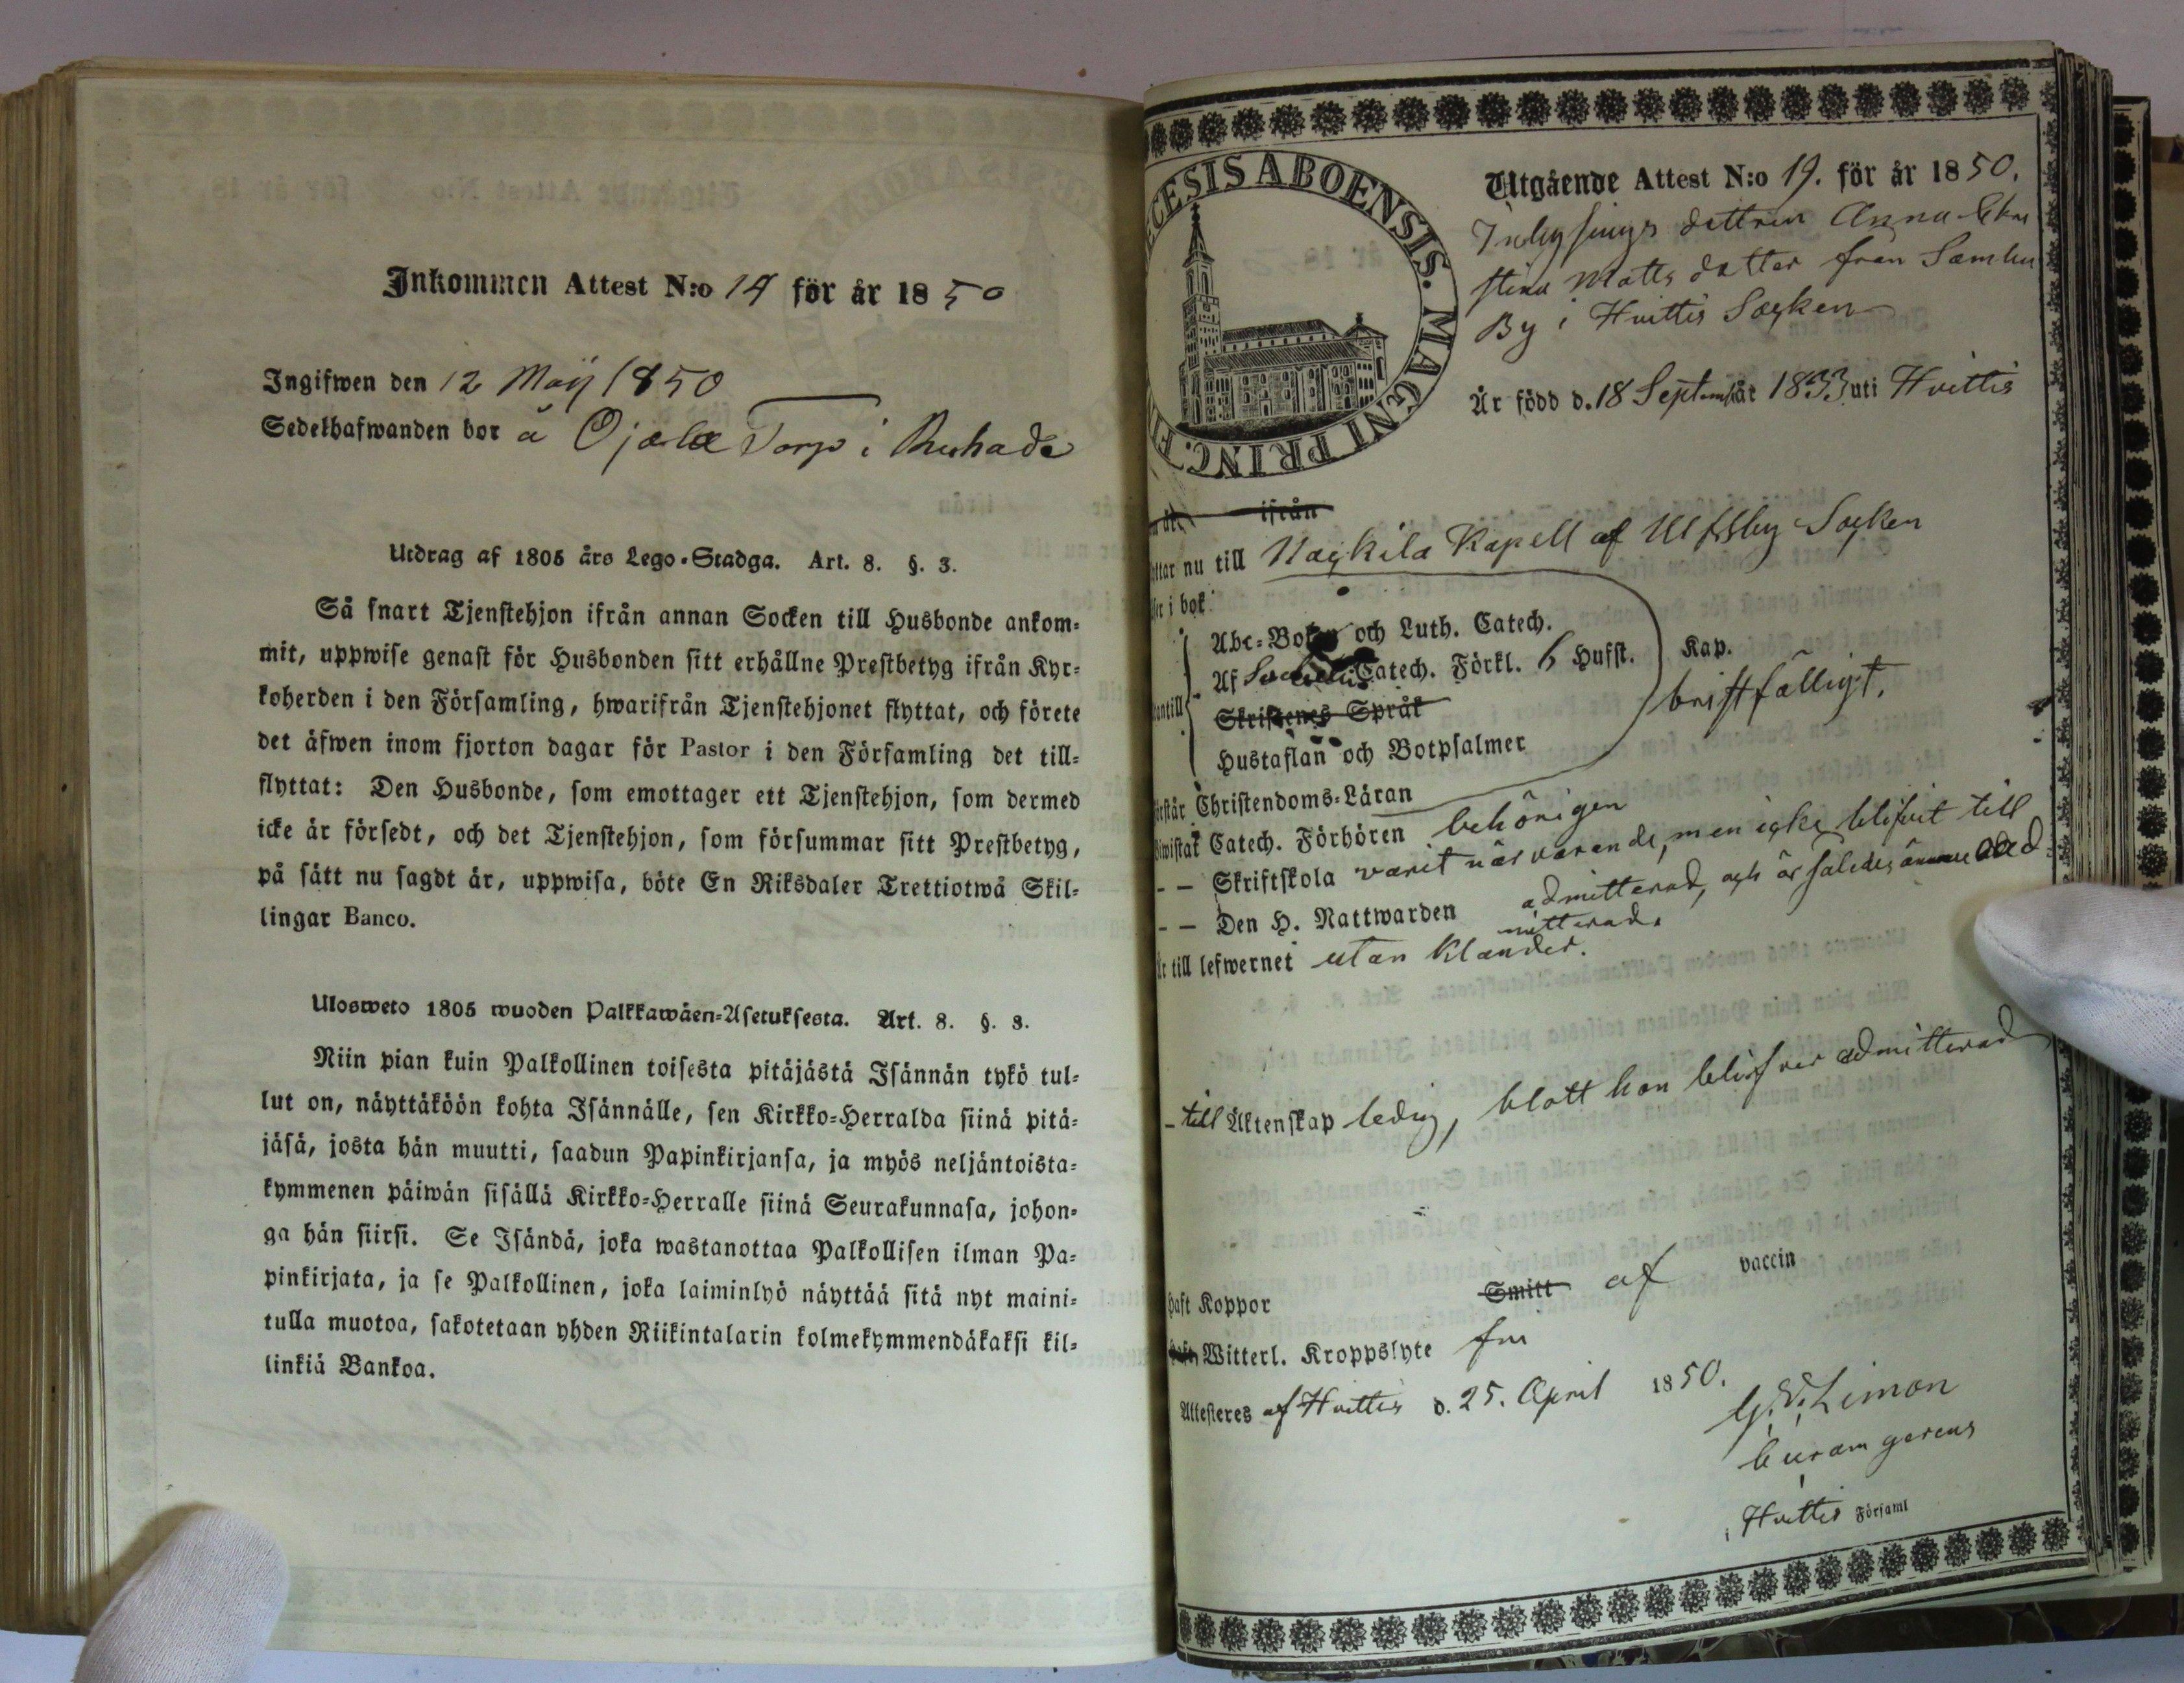 Inkommen Attest N:o 14 för år 1850
Ingifwen den 12 Maij 1850
Sedelhafwanden bor å Ojala Torp i
Utdrag af 1805 års Lego-Stadga. Art. 8. §. 3.
Så snart Tjenstehjon ifrån annan Socken till Husbonde ankom-
mit, uppwise genast för Husbonden sitt erhållne Prestbetyg ifrån Kyr-
koherden i den Församling, hwarifrån Tjenstehjonet flyttat, och förete
det äfwen inom fjorton dagar för Pastor i den Församling det till-
flyttat: Den Husbonde, som emottager ett Tjenstehjon, som dermed
icke är försedt, och det Tjenstehjon, som försummar sitt Prestbetyg,
på sätt nu sagdt är, uppwisa, böte En Riksdaler Trettiotwå Skil-
lingar Banco.
Ulosweto 1805 wuoden Palkkawäen-Asetuksesta. Art. 8. §. 3.
Niin pian kuin Palkollinen toisesta pitäjästä Isännän tykö tul-
lut on, näyttäköön kohta Isännälle, sen Kirkko-Herralda siinä pitä-
jäsä, josta hän muutti, saadun Papinkirjansa, ja myös neljäntoista-
kymmenen päiwän sisällä Kirkko-Herralle siinä Seurakunnasa, johon-
ga hän siirsi. Se Isändä, joka wastanottaa Palkollisen ilman Pa-
pinkirjata, ja se Palkollinen, joka laiminlyö näyttää sitä nyt maini-
tulla muotoa, sakotetaan yhden Riikintalarin kolmekymmendäkaksi kil-
linkiä Bankoa.
CESIS ABOENSIS. MAGNI PRINC. FI
Utgående Attest N:o 19. för år 1850.
Inhysings dottren Anna Chri
stina Matts dotter från
By i Hvittis Socken
Är född d. 18 September 1833 uti Hvittis
ifrån
ttar nu till Kapell af Ulfsby Socken
i bok
Abc-Boken och Luth. Catech.
Af Catech. Förkl. 6 Hufst. Kap.
antill Skriftenes Språk bristfälligt.
Hustaflan och Botpsalmer
rstår Christendoms-Läran
iwistat Catech. Förhören behörigen
- - Skriftskola varit närvarande, men icke blifvit till
- - Den H. Nattwarden admitterad, och är således
mitterad.
r till lefwernet utan klander.
- till Äktenskap ledig, blott hon blifver admitterad
haft Koppor Smitt af vaccin
Witterl. Kroppslyte fri
Attesteres af Hvittis d. 25. April 1850.
G. Limon
Curam gerens
i Hvittis Församl